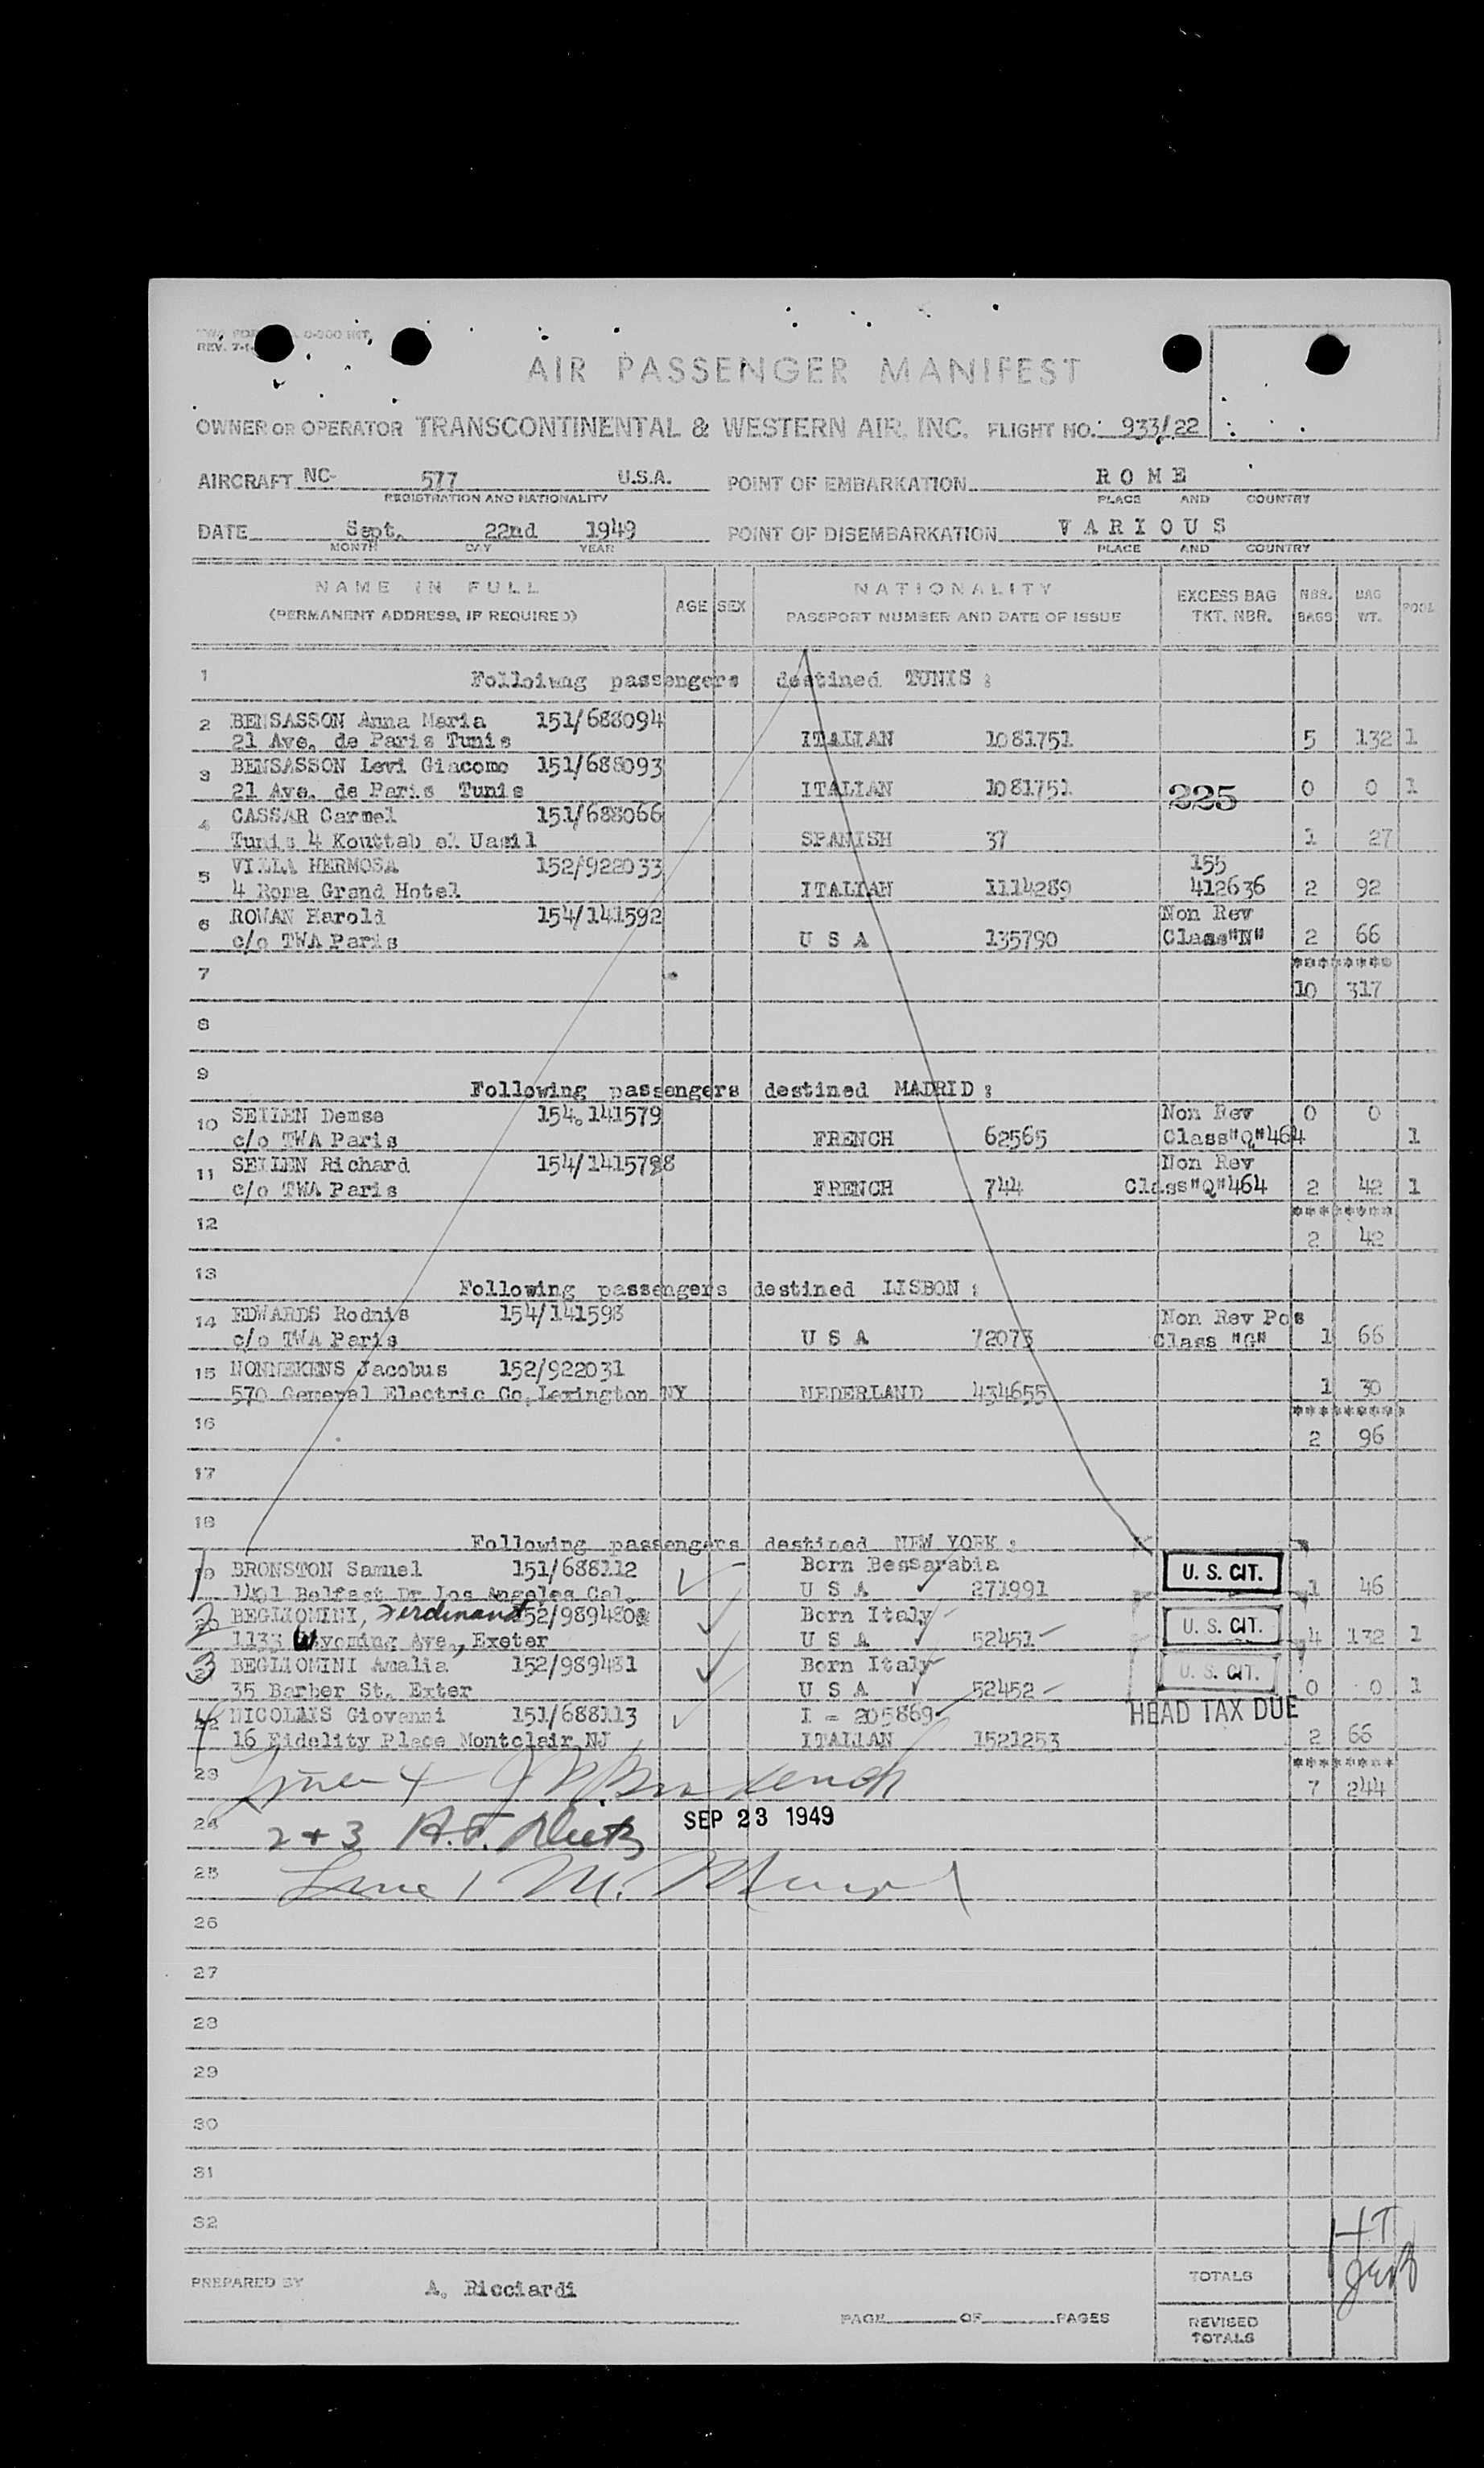 REV. 7-1-
AIR PASSENGER MANIFEST
OWNER OR OPERATOR TRANSCONTINENTAL & WESTERN AIR, INC. FLIGHT NO. 933/22
AIRCRAFT NC- 577 U.S.A. POINT OF EMBARKATION R O M E
REGISTRATION AND NATIONALITY PLACE AND COUNTRY
DATE Sept. 22nd 1949 POINT OF DISEMBARKATION V A R I O U S
MONTH DAY YEAR PLACE AND COUNTRY
NAME IN FULL NATIONALITY
(PERMANENT ADDRESS, IF REQUIRED) AGE SEX PASSPORT NUMBER AND DATE OF ISSUE EXCESS BAG TKT. NBR. NBR. BAGS BAG WT. POOL
1 Folloiwng passengers destined TUNIS :
2 BENSASSON Anna Maria 151/688094
21 Ave. de Paris Tunis ITALIAN 1081751 5 132 1
3 BENSASSON Levi Giacomo 151/688093
21 Ave. de Paris Tunis ITALIAN 1081751 225 0 0 1
4 CASSAR Carmel 151/688066
Tunis 4 Kouttab el Uasil SPANISH 37 1 27
5 VILLA HERMOSA 152/922033 155
4 Roma Grand Hotel ITALIAN 1114289 412636 2 92
6 ROWAN Harold 154/141592 Non Rev
c/o TWA Paris U S A 135790 Class"N" 2 66
7 ********
10 317
8
9 Following passengers destined MADRID :
10 SEILEN Demse 154.141579 Non Rev 0 0
c/o TWA Paris FRENCH 62565 Class"Q"464 1
11 SEILEN Richard 154/141578 Non Rev
c/o TWA Paris FRENCH 744 Class"Q"464 2 42 1
12 ********
2 42
13 Following passengers destined LISBON :
14 EDWARDS Rodnis 154/141593 Non Rev Pos
c/o TWA Paris U S A 72073 Class "G" 1 66
15 NONNEKENS Jacobus 152/922031
570 General Electric Co, Lexington NY NEDERLAND 434655 1 30
16 *********
2 96
17
18 Following passengers destined NEW YORK :
1 19 BRONSTON Samuel 151/688112 Born Bessarabia U. S. CIT.
Belfast Dr Los Angeles Cal. U S A 271991 1 46
2 20 BEGLIOMINI, Ferdinand 152/989480 Born Italy U. S. CIT.
1133 Wyoming Ave, Exeter U S A 52451 4 132 1
3 21 BEGLIOMINI Amalia 152/989481 Born Italy U. S. CIT.
35 Barber St. Exter U S A 52452 0 0 1
4 22 NICOLAIS Giovanni 151/688113 I = 205869 HEAD TAX DUE
16 Fidelity Place Montclair NJ ITALIAN 1521253 2 66
23 Line 4 ********
7 244
24 2 + 3 SEP 23 1949
25 Line 1 M.
26
27
28
29
30
31
32
HT
PREPARED BY A. Ricciardi TOTALS
PAGE OF PAGES REVISED TOTALS